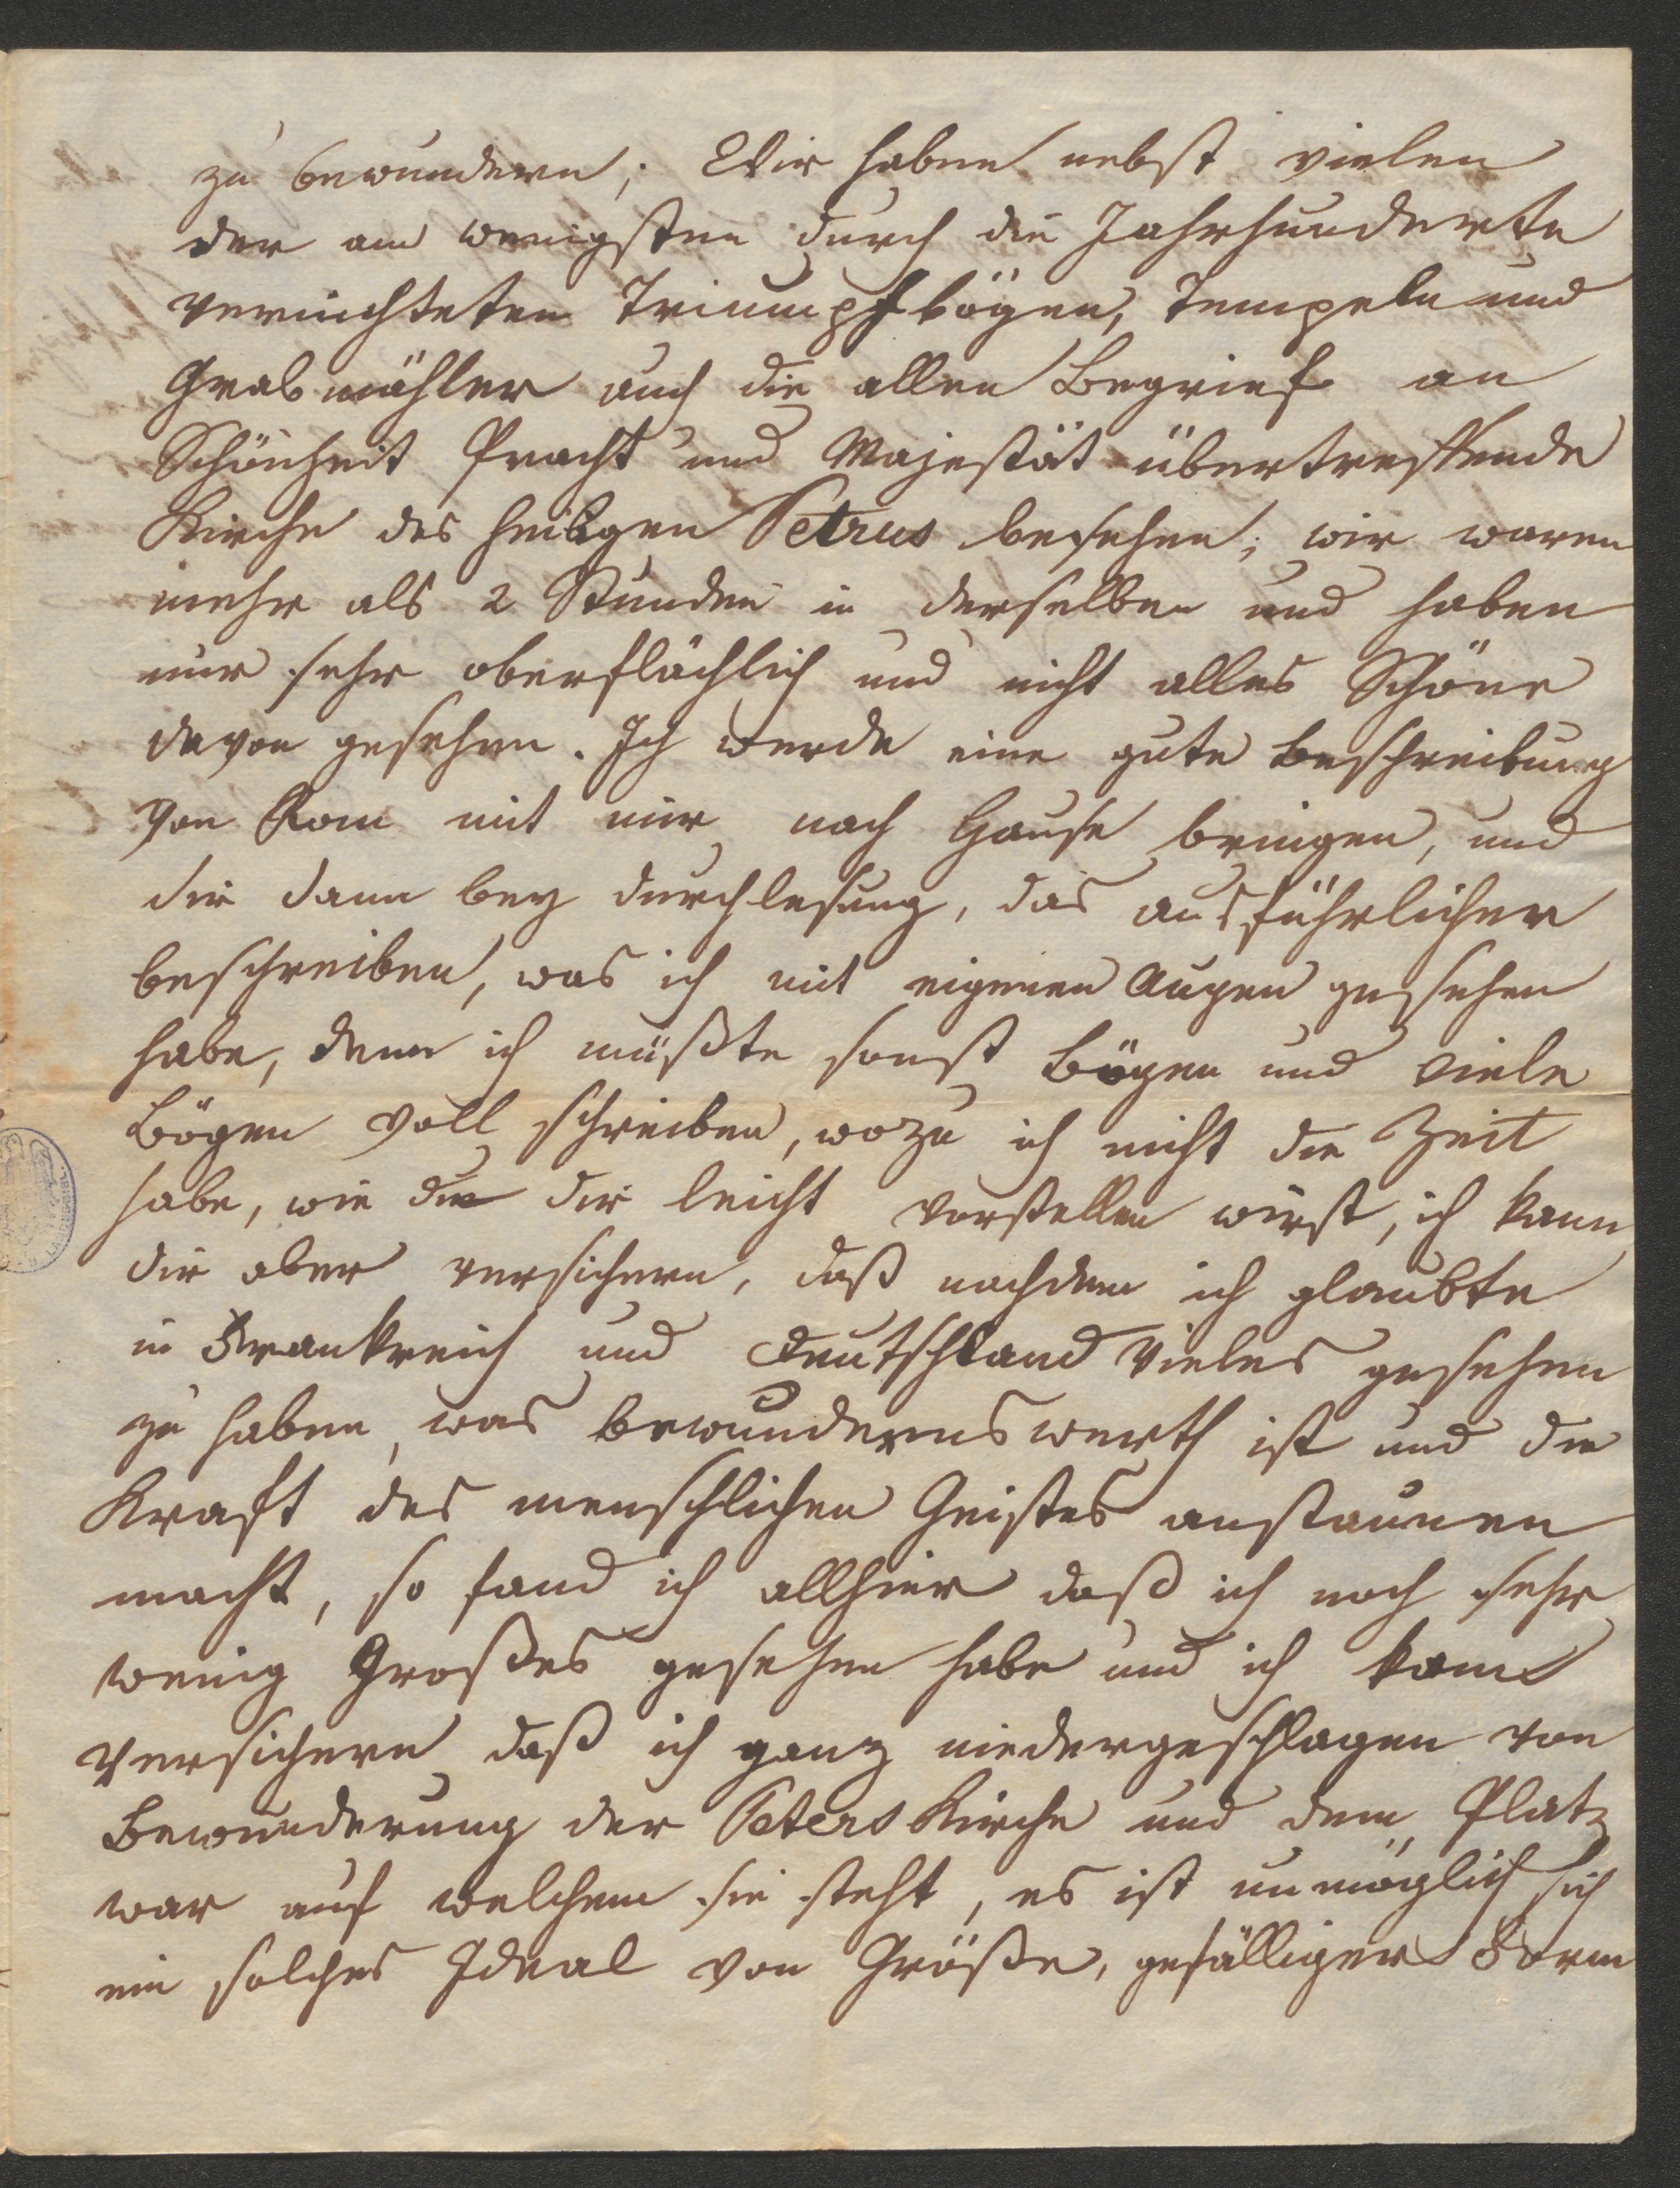 zu bewundern; Wir haben nebst vielen
der am wenigsten durch die Jahrhunderte
vernichteten Triumpfbögen, Tempeln und
Grabmähler auch die allen Begrief an
Schönheit Pracht und Majestät übertreffende
Kirche des heiligen Petrus besehen; wir waren
mehr als 2 Stunden in derselben und haben
nur sehr oberflächlich und nicht alles Schöne
davon gesehen. Ich werde eine gute Beschreibung
von Rom mit mir nach Hause bringen, und
dir dann bey durchlesung, das ausführlicher
beschreiben, was ich mit eigenen Augen gesehen
habe, denn ich müßte sonst Bögen und viele
Bögen voll schreiben, wozu ich nicht die Zeit
habe, wie du dir leicht vorstellen wirst, ich kann
dir aber versichern, daß nachdem ich glaubte
in Frankreich und Deutschland vieles gesehen
zu haben, was bewundernswerth ist und die
Kraft des menschlichen Geistes anstaunen
macht, so fand ich allhier daß ich noch sehr
wenig Großes gesehen habe und ich kann
versichern daß ich ganz niedergeschlagen von
Bewunderung der Peters Kirche und dem Platz
war auf welchem sie steht, es ist unmöglich sich
ein solches Ideal von Größe, gefälliger Form